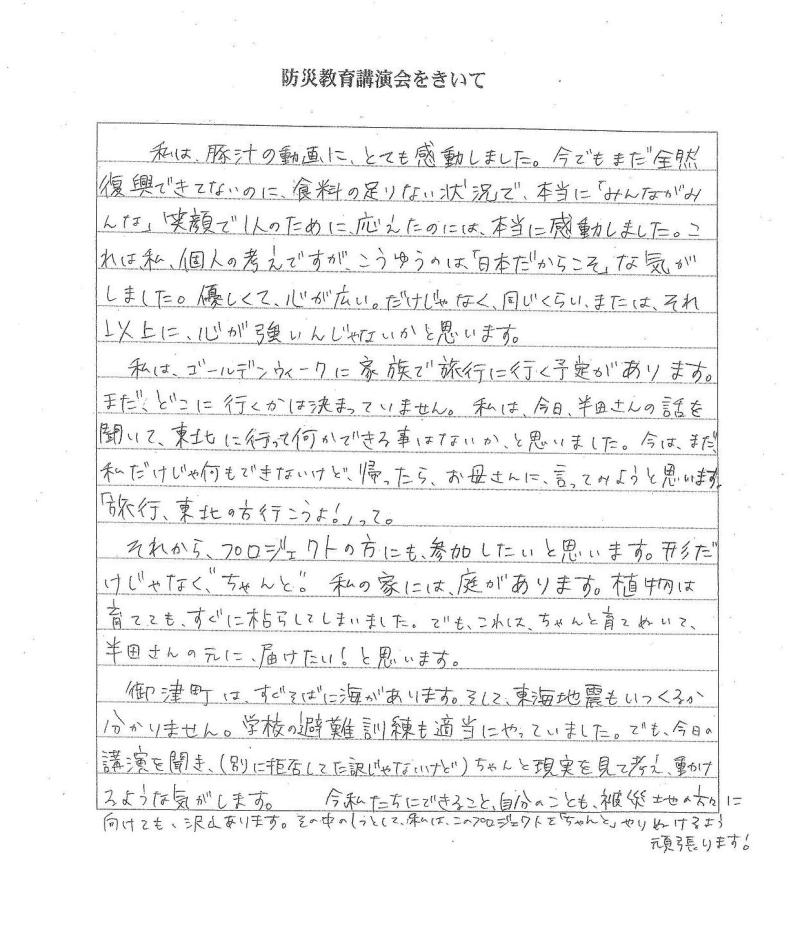 防災教育講演会をきいて
私は、豚汁の動画に、とても感動しました。今でもまだ全然
復興できてないのに、食料の足りない状況で、本当に「みんながみ
んな」笑顔で1人のために、応えたのには、本当に感動しました。こ
れは私、個人の考えですが、こうゆうのは「日本だからこそ」な気が
しました。優しくて、心が広い。だけじゃなく、同じくらい、または、それ
以上に、心が強いんじゃないかと思います。
私は、ゴールデンウィークに家族で旅行に行く予定があります。
まだ、どこに行くかは決まっていません。私は、今日、半田さんの話を
聞いて、東北に行って何かできる事はないか、と思いました。今は、まだ、
私だけじゃ何もできないけど、帰ったら、お母さんに、言ってみようと思います。
「旅行、東北の方行こうよ!」って。
それから、プロジェクトの方にも、参加したいと思います。形だ
けじゃなく、"ちゃんと"。私の家には、庭があります。植物は
育てても、すぐに枯らしてしまいました。でも、これは、ちゃんと育てぬいて、
半田さんの元に、届けたい!と思います。
御津町は、すぐそばに海があります。そして、東海地震もいつくるか
分かりません。学校の避難訓練も適当にやっていました。でも、今日の
講演を聞き、(別に拒否してた訳じゃないけど)ちゃんと現実を見て考え、動け
るような気がします。 今私たちにできること、自分のことも、被災地の方々に
向けても、沢山あります。その中の1つとして、私は、このプロジェクトを「ちゃんと」やりぬけるよう
頑張ります!